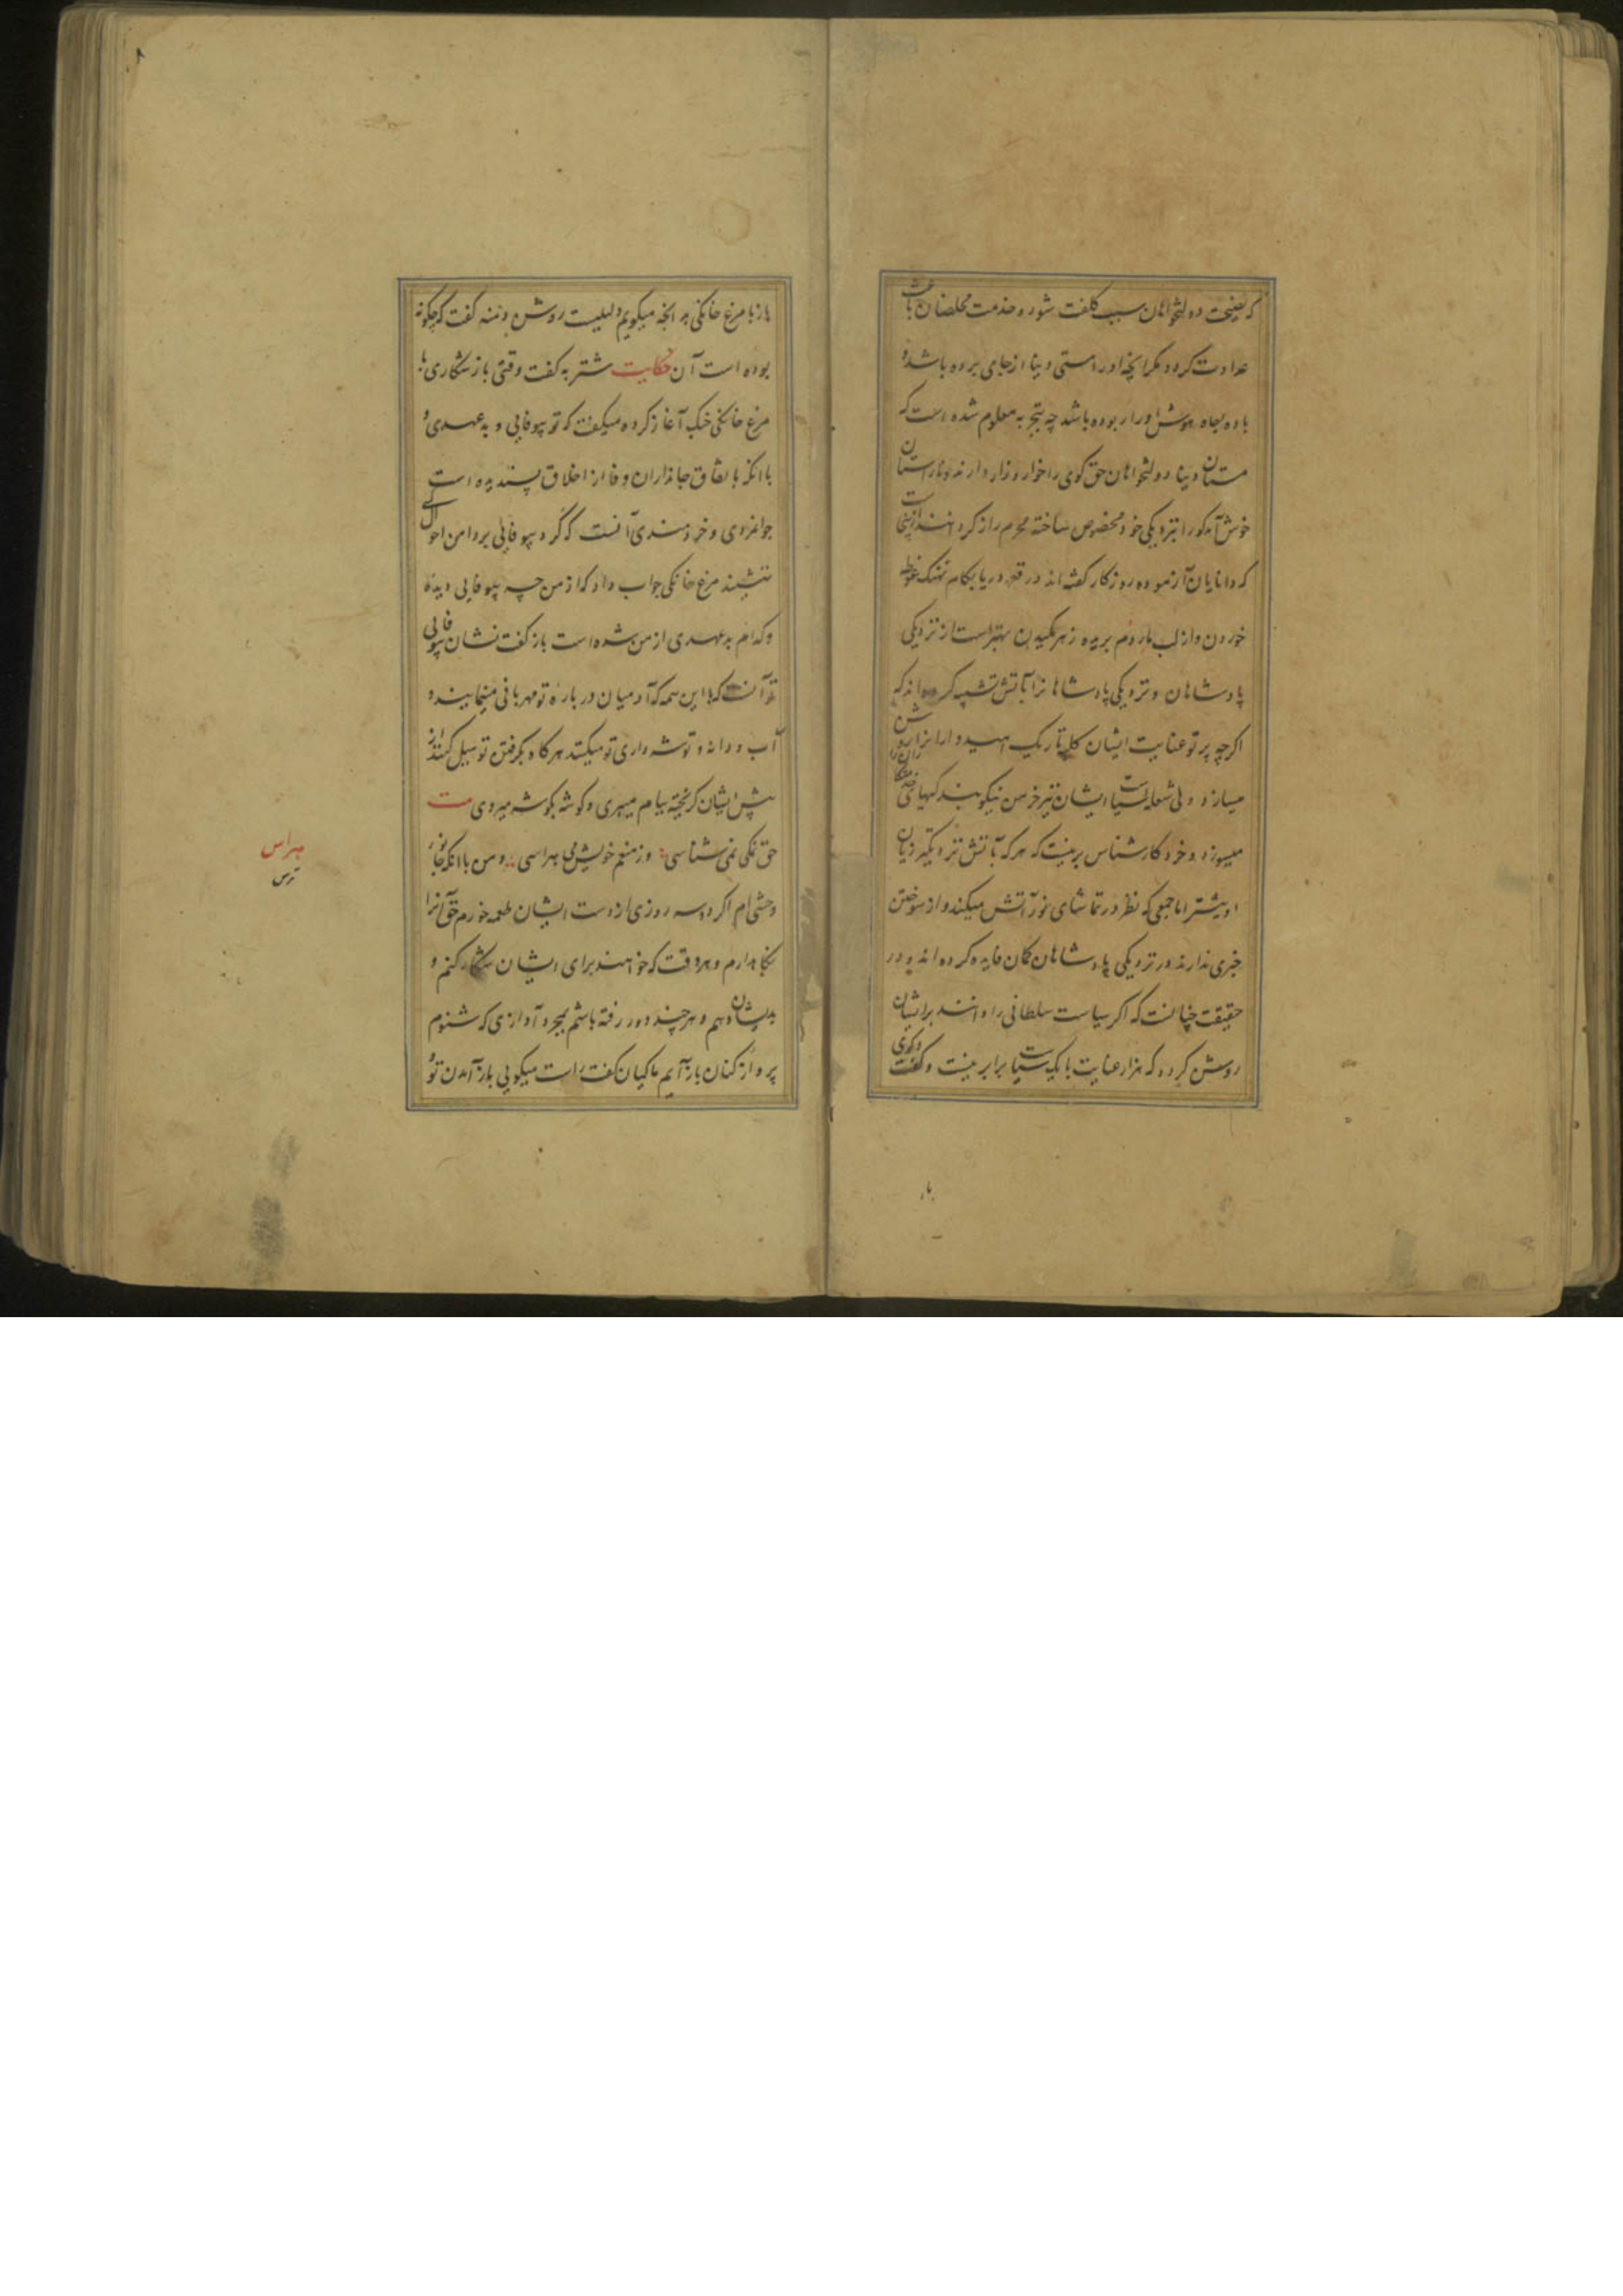 که نصیحت دولتخواهان سبب کلفت شود و خدمت مخلصان باعث
عداوت کردد مکر انچه او را مستی دنیا از جای برده باشد و
باده جاه هوش او را ربوده باشد چه بتجربه معلوم شده است که
مستان دنیا دولتخواهان حق کوی را خوار و زار دارند و ناراستان
خوش آمدکو را بنزدیکی خود مخصوص ساخته محرم راز کردانند ازینجاست
که دانایان آزموده روزکار کفته اند در قعر دریا بکام نهنک غوطه
خوردن و از لب مار دم بریده زهر مکیدن بهتر است از نزدیکی
پادشاهان و نزدیکی پادشاهانرا بآتش تشبیه کرده اند که
اکرچه پرتو عنایت ایشان کلبه تاریک امیدوارانرا روشن
میسازد ولی شعله سیاست ایشان نیز خرمن نیکو بندکیهای خدمتکاران را
میسوزد و خرد کارشناس برینست که هر که بآتش نزدیکتر زیان
او بیشتر اما جمعی که نظر در تماشای نور آتش میکنند و از سوختن
خبری ندارند در نزدیکی پادشاهان کمان فایده کرده اند و در
حقیقت چنانست که اکر سیاست سلطانی را دانند برایشان
روشن کردد که هزار عنایت با یک سیاست برابر نیست و کفت و کوی
باز
باز با مرغ خانکی بر انچه میکویم دلیلیست روشن دمنه کفت که چکونه
بوده است آن حکایت شتربه کفت وقتی باز شکاری با
مرغ خانکی جنک آغاز کرده میکفت که تو بیوفایی و بدعهدی و
با انکه باتفاق جانداران وفا از اخلاق پسندیده است
جوانمردی و خردمندی آنست که کرد بیوفایی بر دامن احوال کسی
ننشیند مرغ خانکی جواب داد که از من چه بیوفایی دیده
و کدام بدعهدی از من شده است باز کفت نشان بیوفایی
تو آنست که با این همه که آدمیان در باره تو مهربانی مینمایند و
آب و دانه و توشه داری تو میکنند هرکاه بکرفتن تو میل کنند از
پیش ایشان کریخته ببام میپری و کوشه بکوشه میروی بیت
حق نمکی نمی شناسی وز منعم خویش می هراسی و من با انکه جانور
وحشی ام اکر دو سه روزی از دست ایشان طعمه خورم حق آنرا
نکاه دارم و هر وقت که خواهند برای ایشان شکار کنم و
بدیشان دهم و هرچند دور رفته باشم بمجرد آوازی که شنوم
پرواز کنان بازآیم ماکیان کفت راست میکویی بازآمدن تو و
هراس
ترس
۸